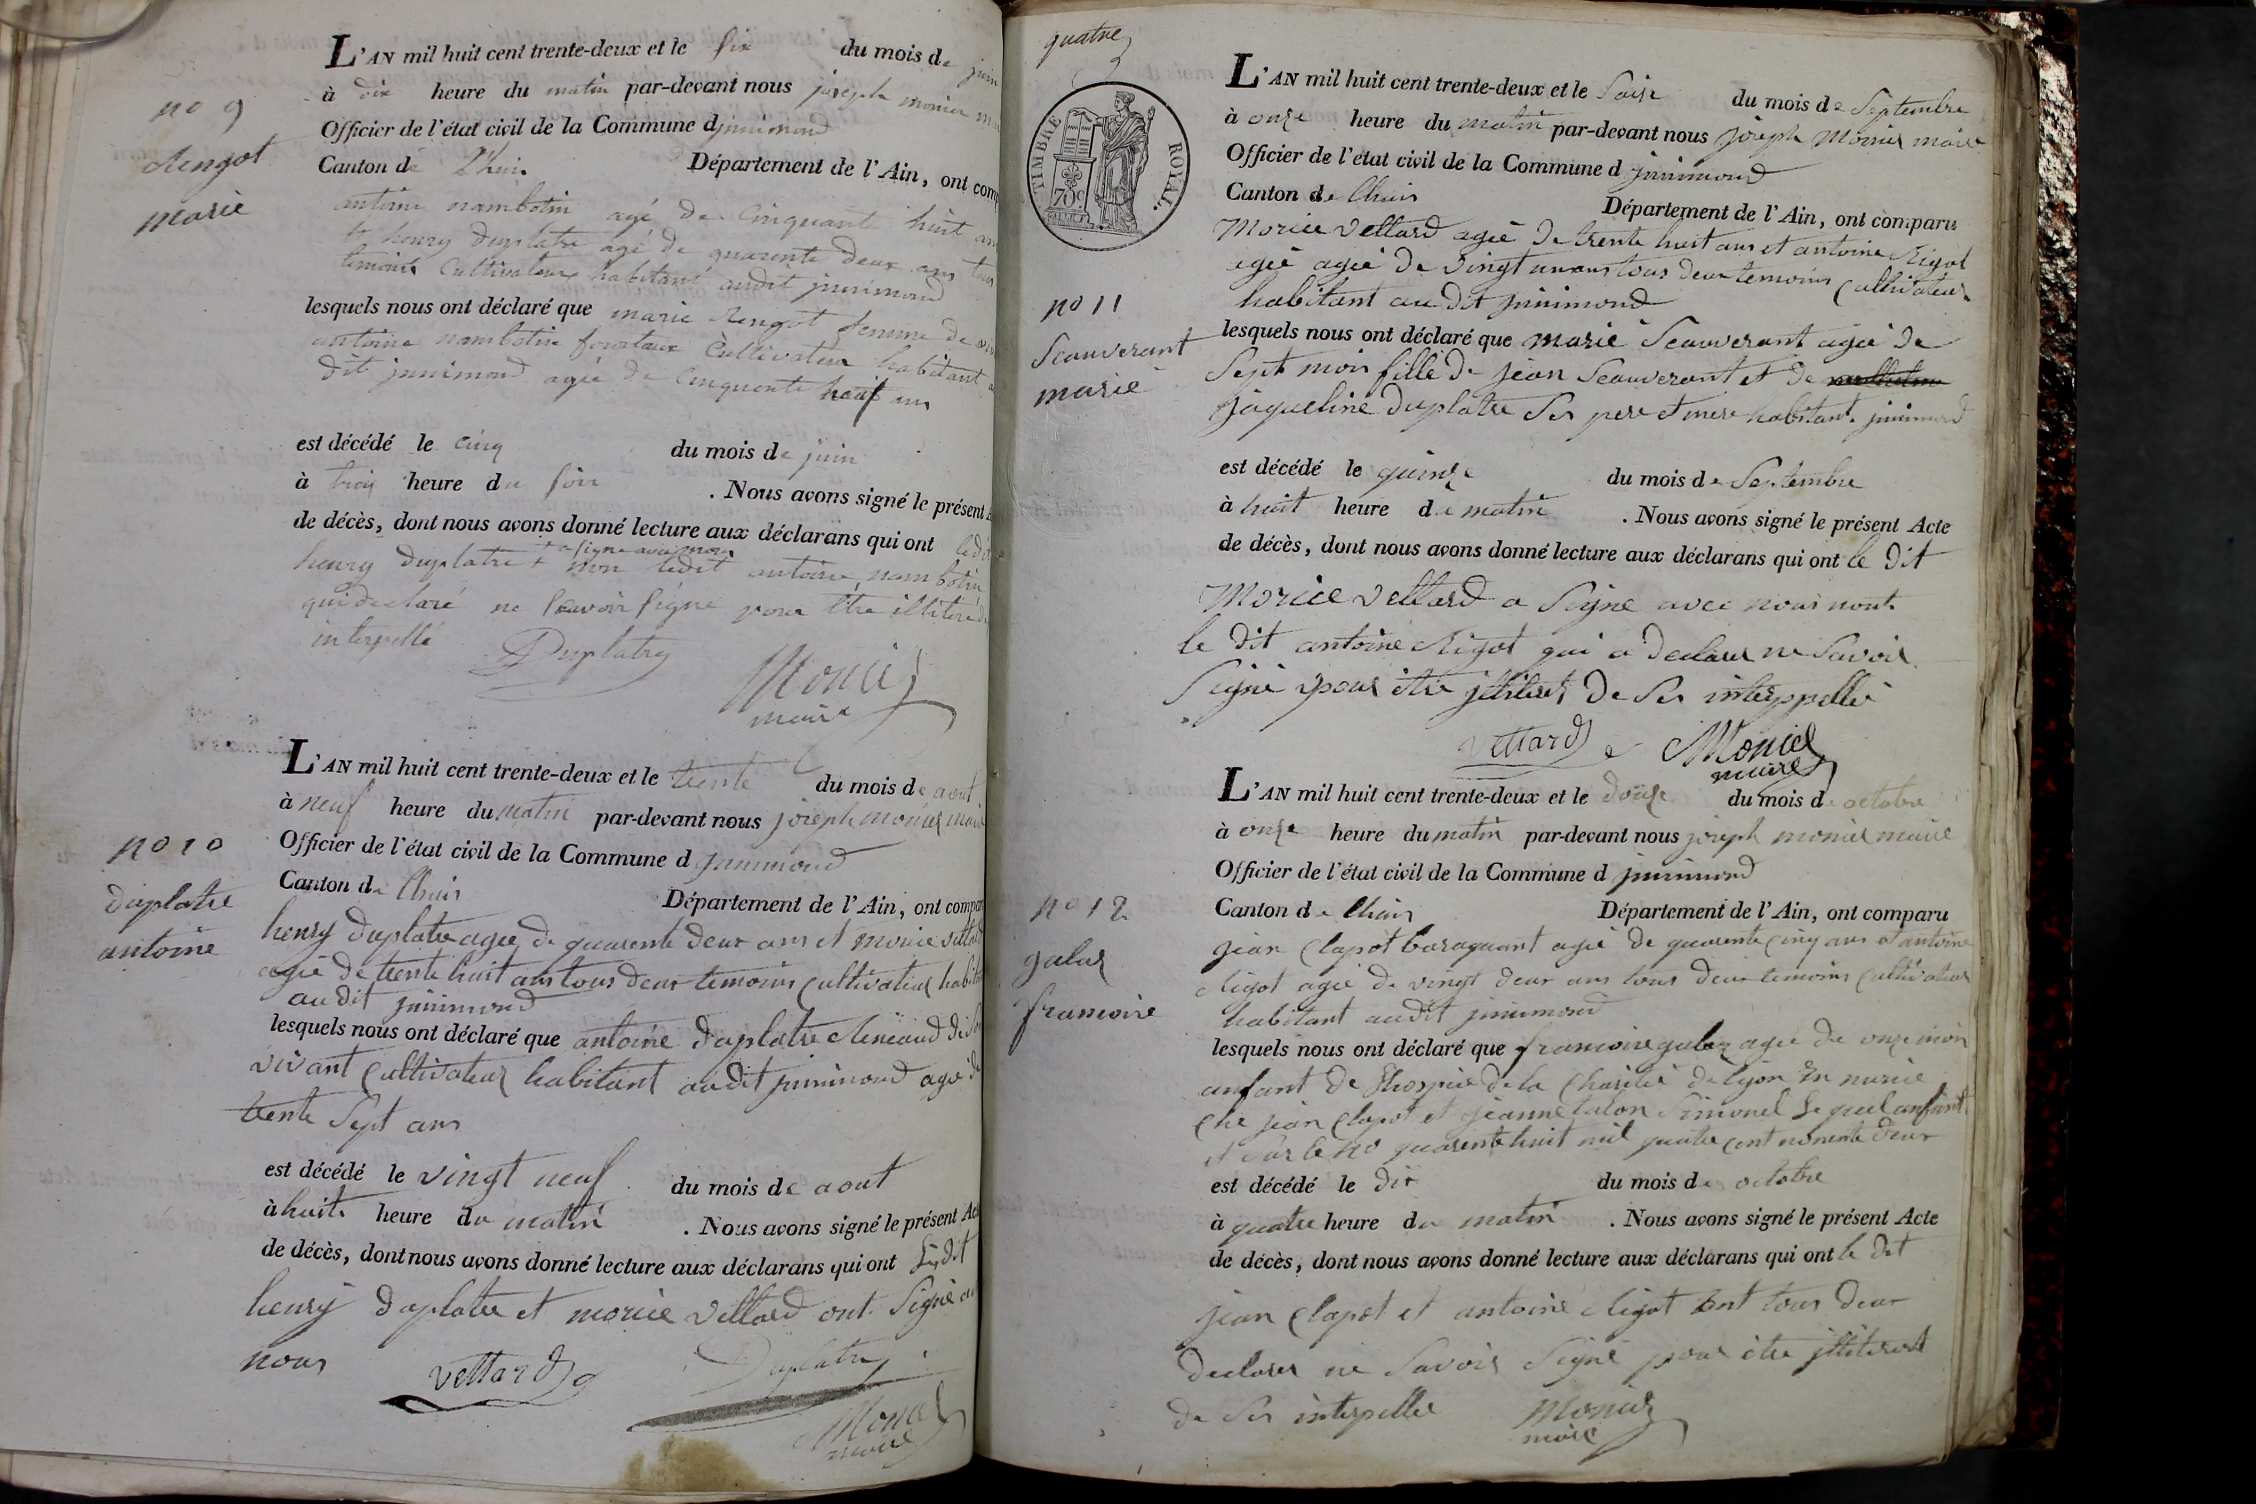 no 9
Rengot
marie
L'AN mil huit cent trente-deux et le six du mois de juin
à dix heure du matin par-devant nous joseph monier
Officier de l'état civil de la Commune d jnnimond
Canton de Lhuis Département de l'Ain, ont comp
antoine nambotin agé de Cinquante huit an
et henry duplatre agé de quarente deux ans tous
temoins Cultivateur habitant audit jnnimond
lesquels nous ont déclaré que marie Rengot femme de
antoine nambotin Cultivateur habitant
dit jnnimond agée de Cinquente huit ans
est décédé le cinq du mois de juin
à troi heure du soir . Nous avons signé le présent
de décès, dont nous avons donné lecture aux déclarans qui ont ledit
a signe avec nous
henry duplatre + non ledit antoine nambotin
qui declaré ne savoir signe pour être illiteré
interpellé
Duplatre
Monier
maire
no 10
duplatre
antoine
L'AN mil huit cent trente-deux et le trente du mois de aout
à neuf heure du matin par-devant nous joseph monier maire
Officier de l'état civil de la Commune d jnnimond
Canton de Lhuis Département de l'Ain, ont compar
henry duplatre agée de quarente deux ans et morice vettard
agée de trente huit ans tous deux temoins Cultivateur habit
audit jnnimond
lesquels nous ont déclaré que antoine duplatre
vivant Cultivateur habitant audit jnnimond agé de
trente Sept ans
est décédé le vingt neuf du mois de aout
à huit heure du matin . Nous avons signé le présent Act
de décès, dont nous avons donné lecture aux déclarans qui ont Ledit
henry duplatre et morice vettard ont Signé av
nous
vettard
Duplatre
Monier
maire
quatre
TIMBRE ROYAL.
70c
no 11
Seauverant
marie
L'AN mil huit cent trente-deux et le Saize du mois de Septembre
à onze heure du matin par-devant nous joseph Monier maire
Officier de l'état civil de la Commune d jnnimond
Canton de Lhuis Département de l'Ain, ont comparu
Morice Vettard agée de trente huit ans et antoine Rigot
agée agée de vingt un ans tous deux temoins Cultivateur
habitant au dit jnnimond
lesquels nous ont déclaré que marie Seauverant agée de
Sept mois fille de jean Seauverant et de
jaqueline duplatre Ses pere et mere habitant jnnimond
est décédé le quinze du mois de Septembre
à huit heure de matin . Nous avons signé le présent Acte
de décès, dont nous avons donné lecture aux déclarans qui ont le dit
Morice vettard a Signe avec nous nont
le dit antoine Rigot qui a declarer ne Savoir
Signe pour être jlliteret de Ses interppellé
vettard
Monier
maire
no 12
galer
francoise
L'AN mil huit cent trente-deux et le douze du mois de octobre
à onze heure du matin par-devant nous joseph monier maire
Officier de l'état civil de la Commune d jnnimond
Canton de Lhuis Département de l'Ain, ont comparu
jean Clapot baraquant agée de quarente Cinq ans et antoine
Rigot agée de vingt deux ans tous deux temoins Cultivateur
habitant audit jnnimond
lesquels nous ont déclaré que francoise galer agée de onze mois
anfant de Lhospice de la Charité de lyon En nurice
Che jean Clapot et jeanne talon Simonel Lequel anfant
et Sur le no quarente huit mil quatre cent nonente deux
est décédé le dix du mois de octobre
à quatre heure du matin . Nous avons signé le présent Acte
de décès, dont nous avons donné lecture aux déclarans qui ont le dit
jean Clapot et antoine Rigot ont tous deux
declarer ne Savoir Signe pour être jlliteret
de Ses interpelle
Monier
maire